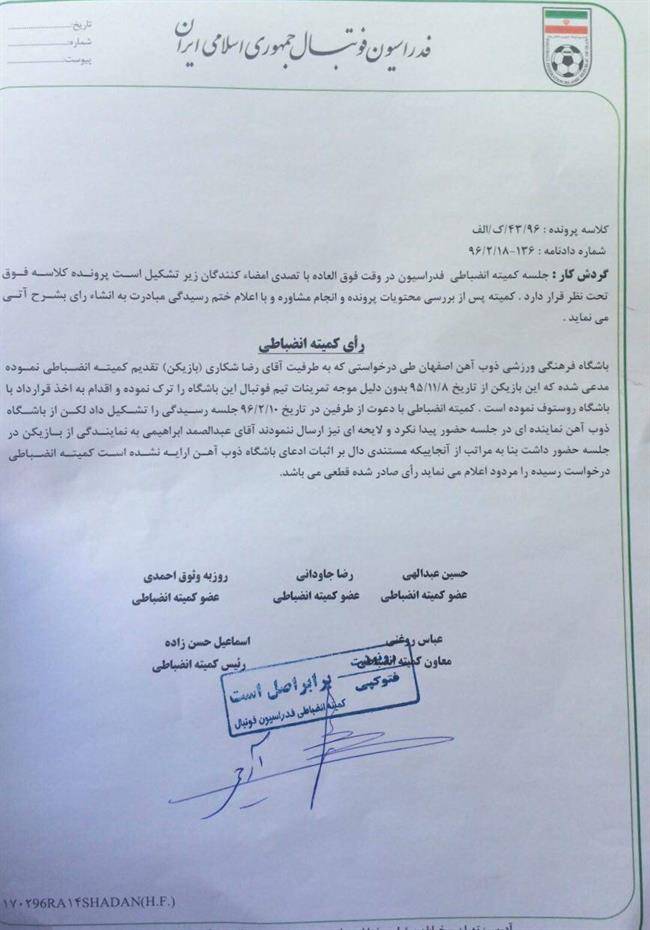 فدراسیون فوتبال جمهوری اسلامی ایران
تاریخ:
شماره:
پیوست:
کلاسه پرونده : ۴۳/۹۶/ک/الف
شماره دادنامه : ۱۳۶-۹۶/۲/۱۸
گردش کار : جلسه کمیته انضباطی فدراسیون در وقت فوق العاده با تصدی امضاء کنندگان زیر تشکیل است پرونده کلاسه فوق
تحت نظر قرار دارد . کمیته پس از بررسی محتویات پرونده و انجام مشاوره و با اعلام ختم رسیدگی مبادرت به انشاء رای بشرح آتی
می نماید .
رأی کمیته انضباطی
باشگاه فرهنگی ورزشی ذوب آهن اصفهان طی درخواستی که به طرفیت آقای رضا شکاری (بازیکن) تقدیم کمیته انضباطی نموده
مدعی شده که این بازیکن از تاریخ ۹۵/۱۱/۸ بدون دلیل موجه تمرینات تیم فوتبال این باشگاه را ترک نموده و اقدام به اخذ قرارداد با
باشگاه روستوف نموده است . کمیته انضباطی با دعوت از طرفین در تاریخ ۹۶/۲/۱۰ جلسه رسیدگی را تشکیل داد لکن از باشگاه
ذوب آهن نماینده ای در جلسه حضور پیدا نکرد و لایحه ای نیز ارسال ننمودند آقای عبدالصمد ابراهیمی به نمایندگی از بازیکن در
جلسه حضور داشت بنا به مراتب از آنجاییکه مستندی دال بر اثبات ادعای باشگاه ذوب آهن ارایه نشده است کمیته انضباطی
درخواست رسیده را مردود اعلام می نماید رأی صادر شده قطعی می باشد.
حسین عبدالهی رضا جاودانی روزبه وثوق احمدی
عضو کمیته انضباطی عضو کمیته انضباطی عضو کمیته انضباطی
عباس روغنی اسماعیل حسن زاده
معاون کمیته انضباطی رئیس کمیته انضباطی
رونوشت
فتوکپی
برابر اصل است
کمیته انضباطی فدراسیون فوتبال
۱۷۰۲96RA۱۴SHADAN(H.F.)